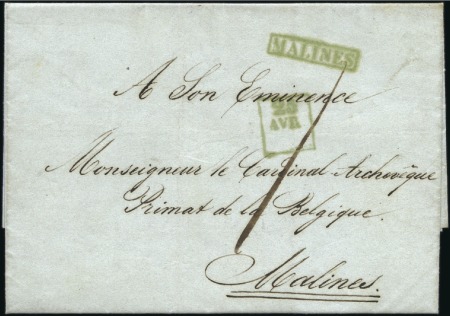 MALINES
A Son Eminence
25
AVR
Monseigneur le Cardinal-Archevêque
Primat de la Belgique.
Malines.